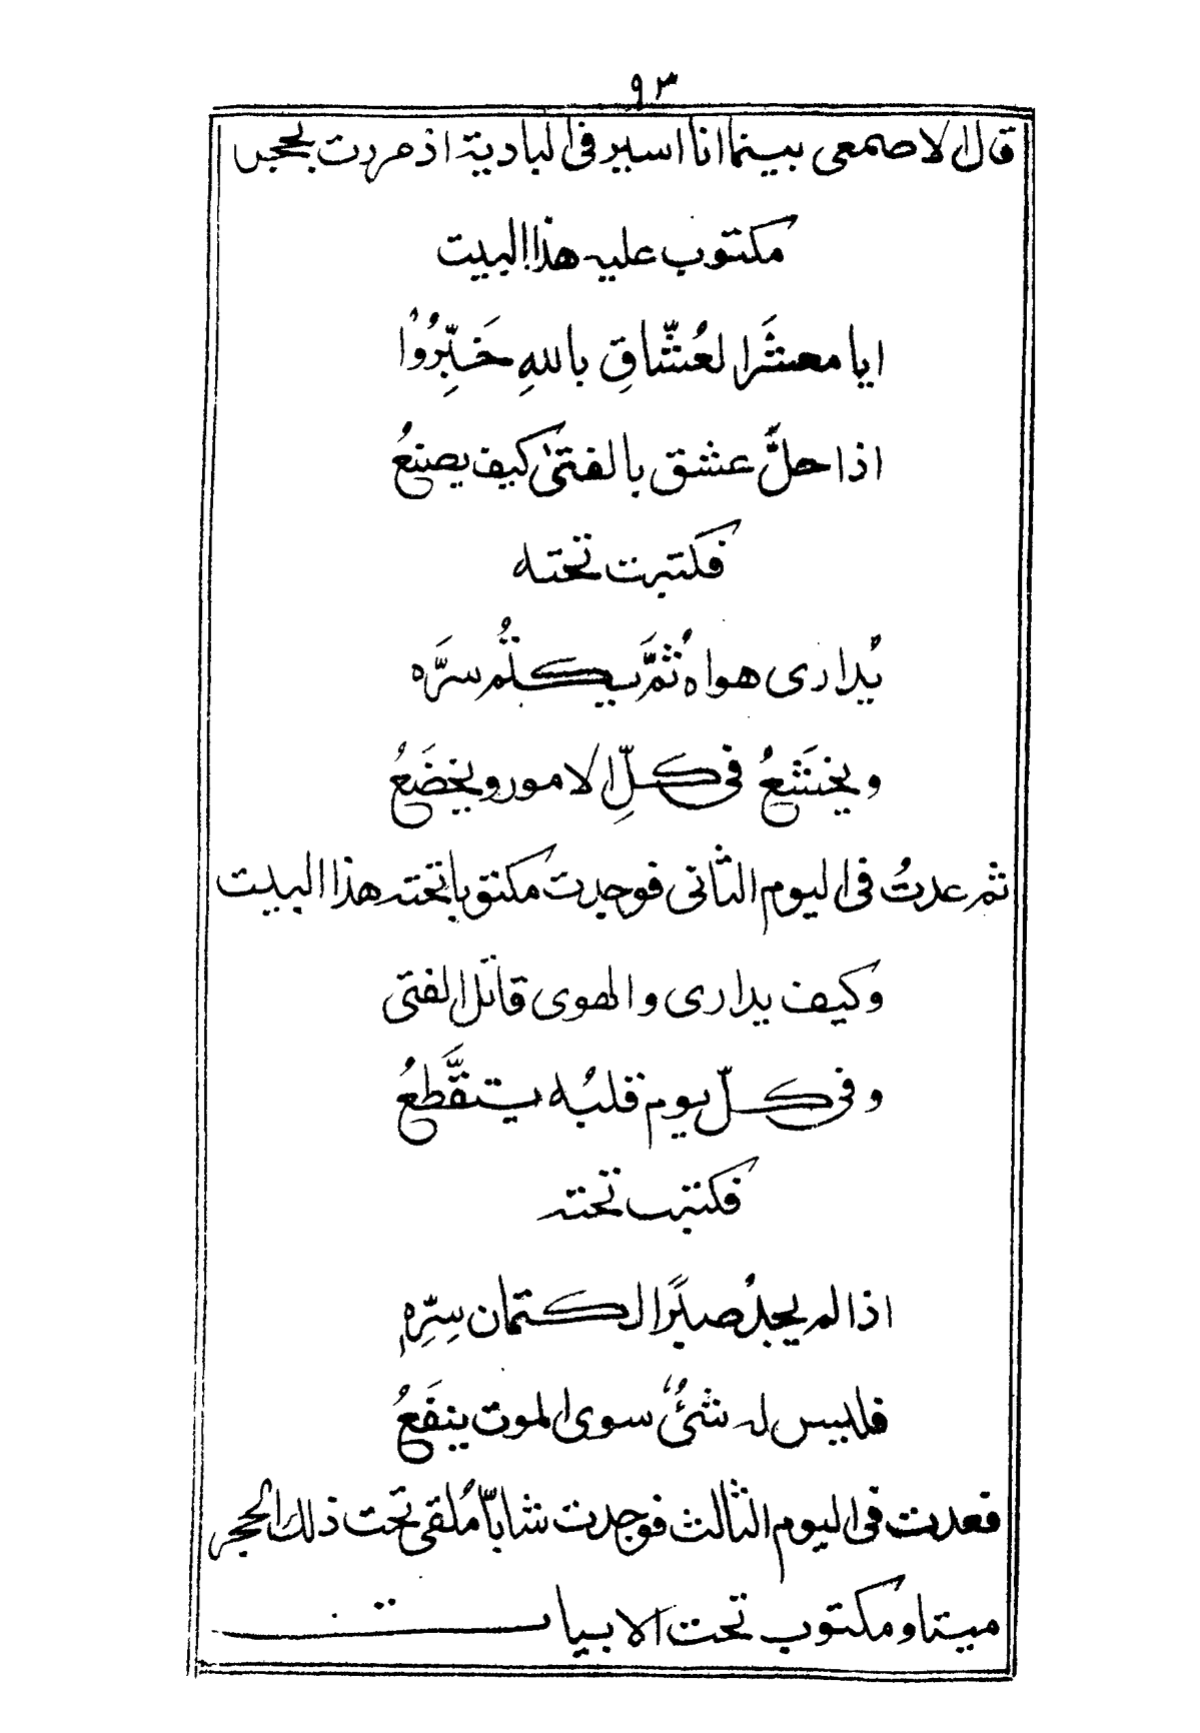 ٩٣
قال الاصمعى بينما انا اسير فى البادية اذ مررت بحجر
مكتوب عليه هذا البيت
ايا معشَرا لعُشّاقِ باللهِ خَبِّرُوْا
اذا حلَّ عشق بالفتىٰ كيف يصنعُ
فكتبت تحته
يُدارى هواهُ ثمَّ يكتُم سرَّه
ويخشَعُ فى كلِّ الامور ويخضَعُ
ثم عدتُ فى اليوم الثانى فوجدت مكتوبا تحته هذا البيت
وكيف يدارى والهوى قاتل الفتى
وفى كلّ يوم قلبُه يتقَّطعُ
فكتبت تحته
اذا لم يجدْ صبرًا لكتمان سِرِّهٖ
فليس له شئٌ سوى الموت ينفَعُ
فعدت فى اليوم الثالث فوجدت شابّا مُلقى تحت ذلك الحجر
ميتا ومكتوب تحت الابيات